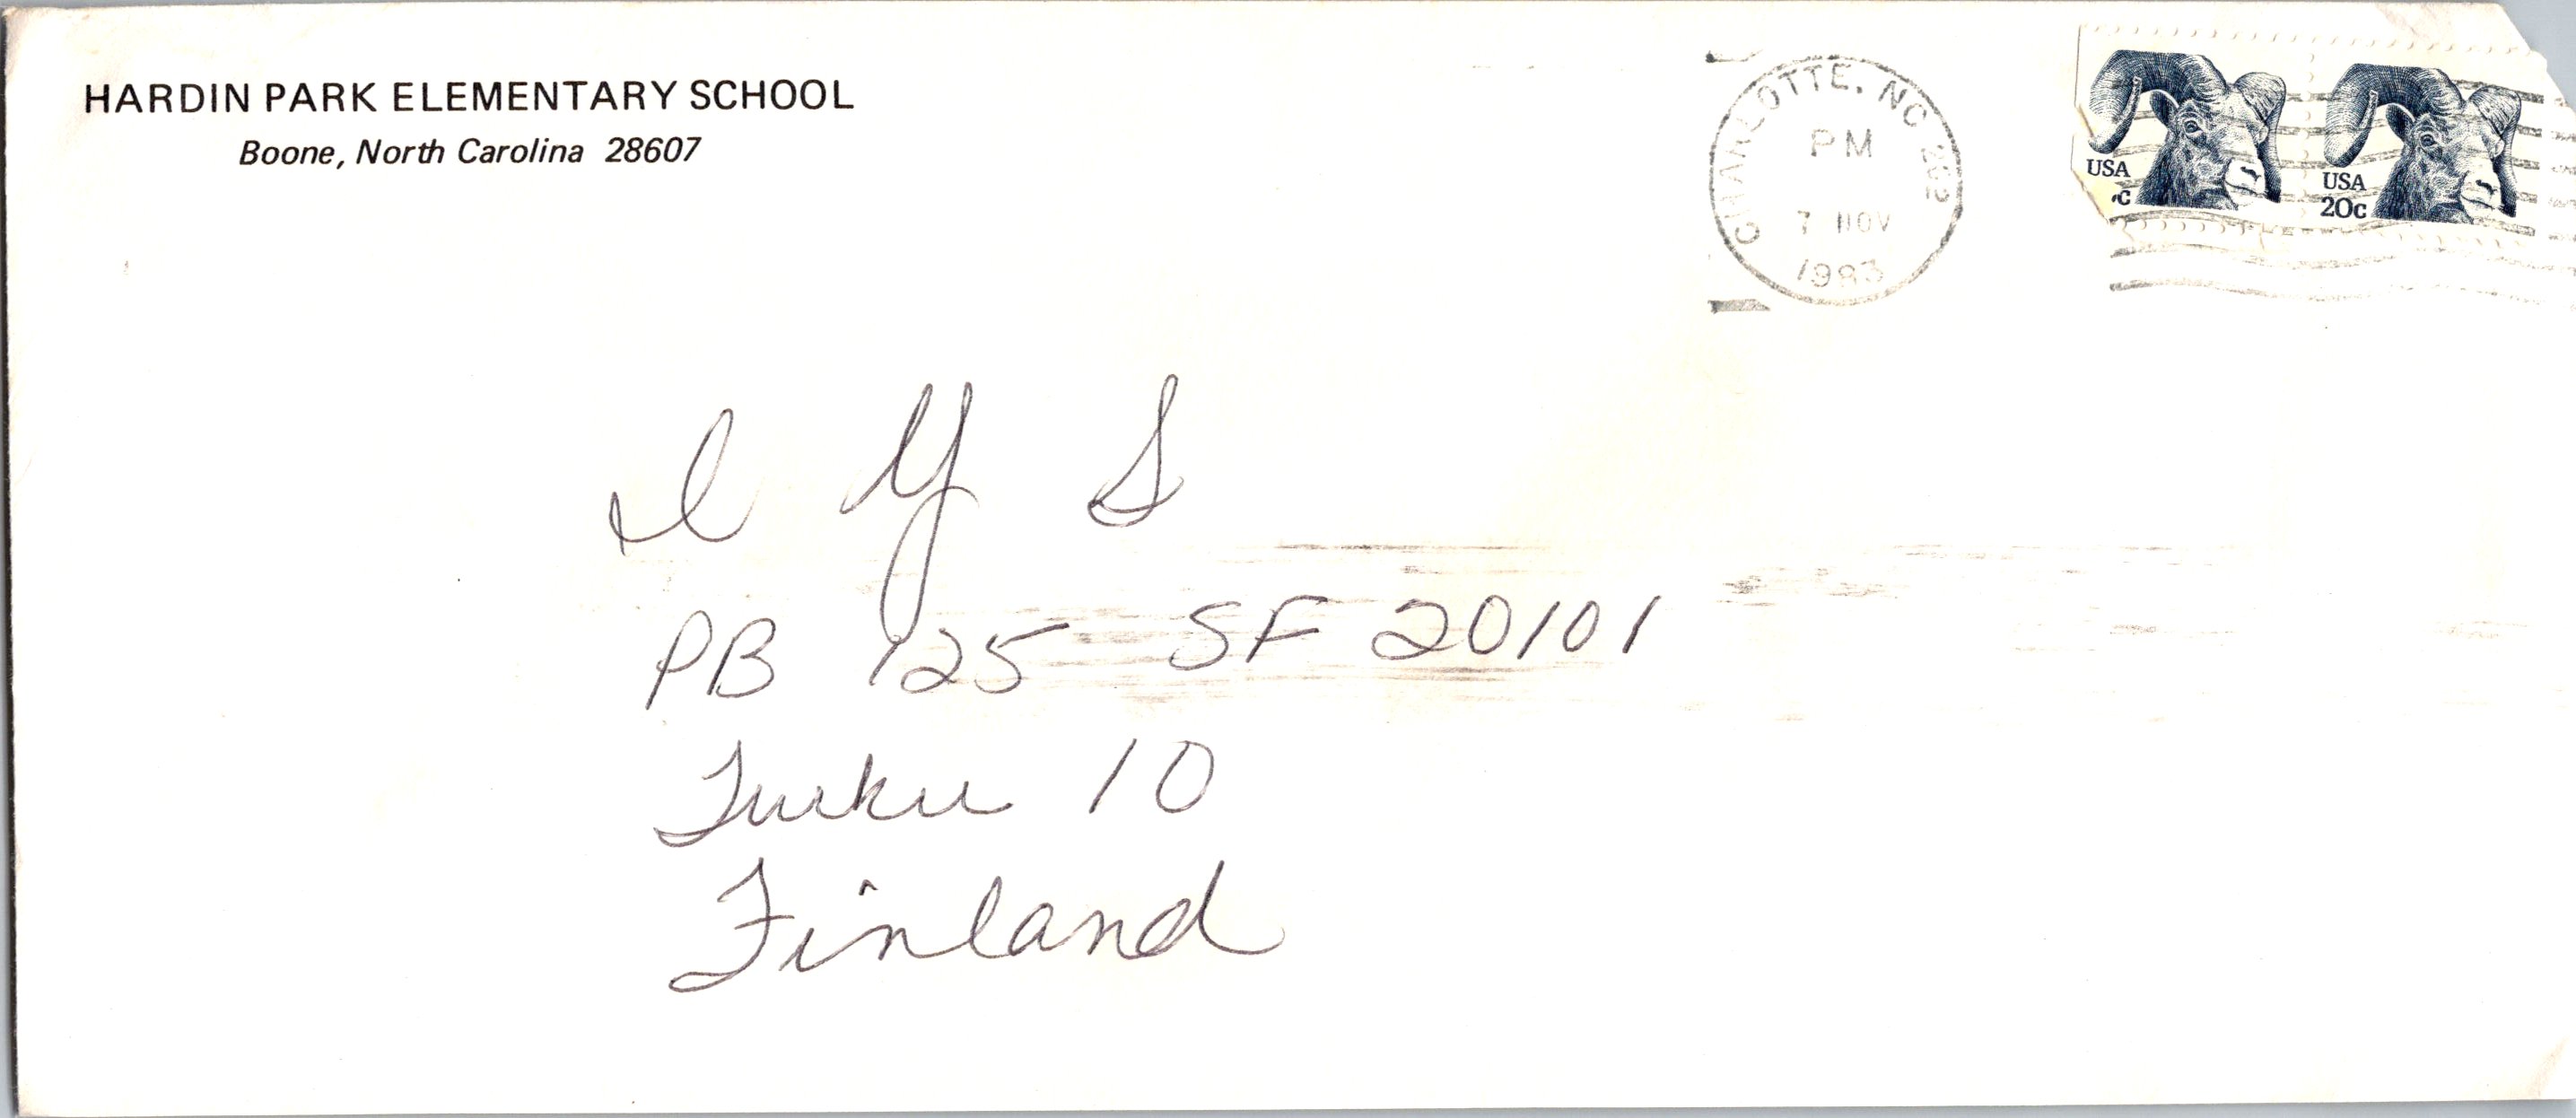 HARDIN PARK ELEMENTARY SCHOOL
Boone, North Carolina 28607
CHARLOTTE, NC 282
PM
7 NOV
1983
USA
c
USA
20c
I Y S
PB 125 SF 20101
Turku 10
Finland